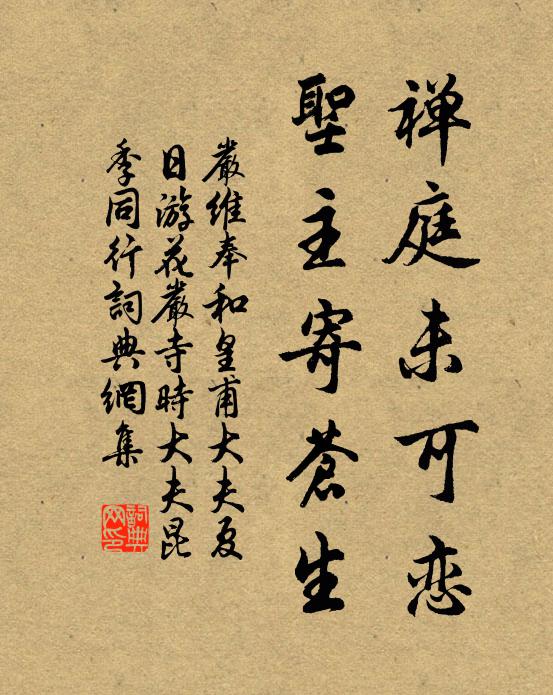 禅庭未可恋
聖主寄蒼生
嚴維奉和皇甫大夫夏
日游花嚴寺時大夫昆
季同行詞典網集
詞典网印